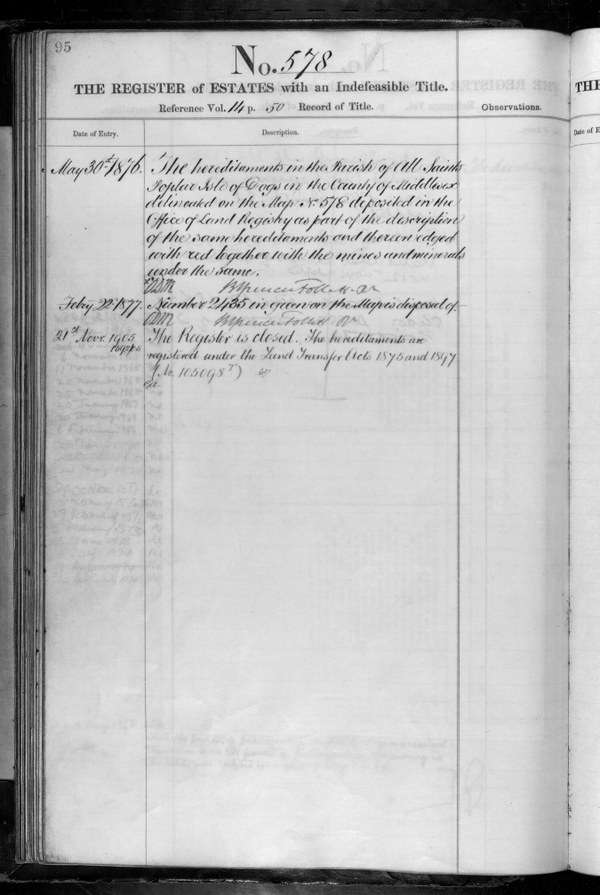 95
No. 578
THE REGISTER of ESTATES with an Indefeasible Title.
Reference Vol. 14 p. 50 Record of Title.
Observations.
Date of Entry.
Description.
May 30th 1876. The hereditaments in the Parish of All Saints
Poplar Isle of Dogs in the County of Middlesex
delineated on the Map No 578 deposited in the
Office of Land Registry as part of the description
of the same hereditaments and thereon edged
with red together with the mines and minerals
under the same.
B Spencer Follett
Feby 22 1877. Number 2435 in green on the Map is disposed of
B Spencer Follett
21st Novr. 1905 The Register is closed. The hereditaments are
registered under the Land Transfer Acts 1875 and 1897
(No. 105098)
THE
Date of E